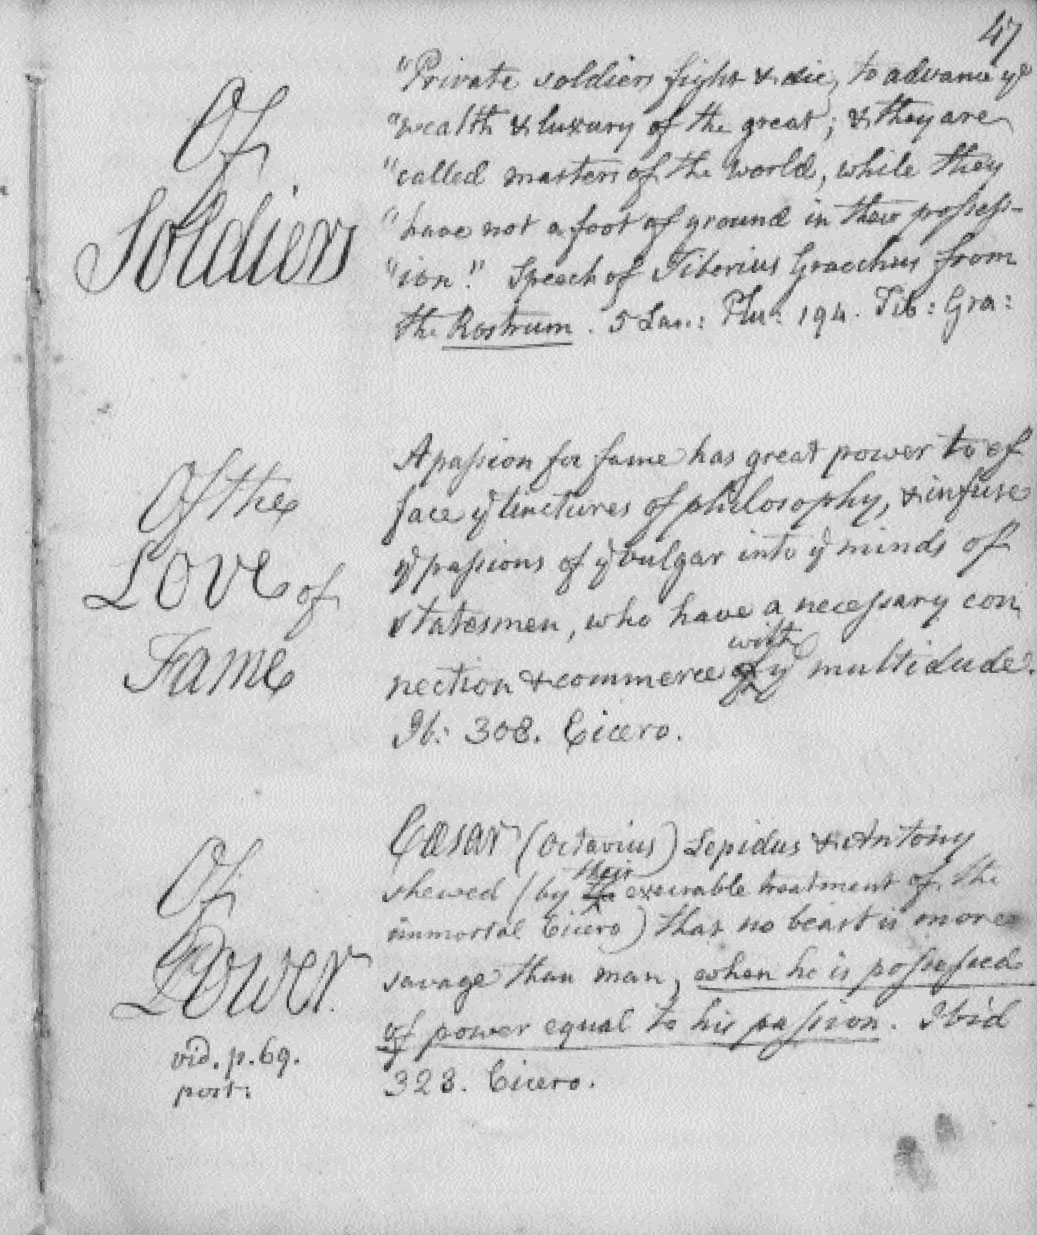 47
Of
Soldiers
"Private soldiers fight & die, to advance ye
"wealth & luxury of the great; & they are
"called masters of the world, while they
"have not a foot of ground in their possess-
"ion." Speech of Tiberius Gracchus from
the Rostrum. 5 Lan: Plu: 194. Tib: Gra:
Of the
LOVE of
Fame
A passion for fame has great power to ef
face ye tinctures of philosophy, & infuse
ye passions of ye vulgar into ye minds of
statesmen, who have a necessary con
nection & commerce with ye multidude.
Ib: 308. Cicero.
Of
Power.
vid. p. 69.
post:
Cæsar (Octavius) Lepidus & Antony
shewed (by their execrable treatment of the
immortal Cicero) that no beast is more
savage than man, when he is possessed
of power equal to his passion. Ibid
323. Cicero.